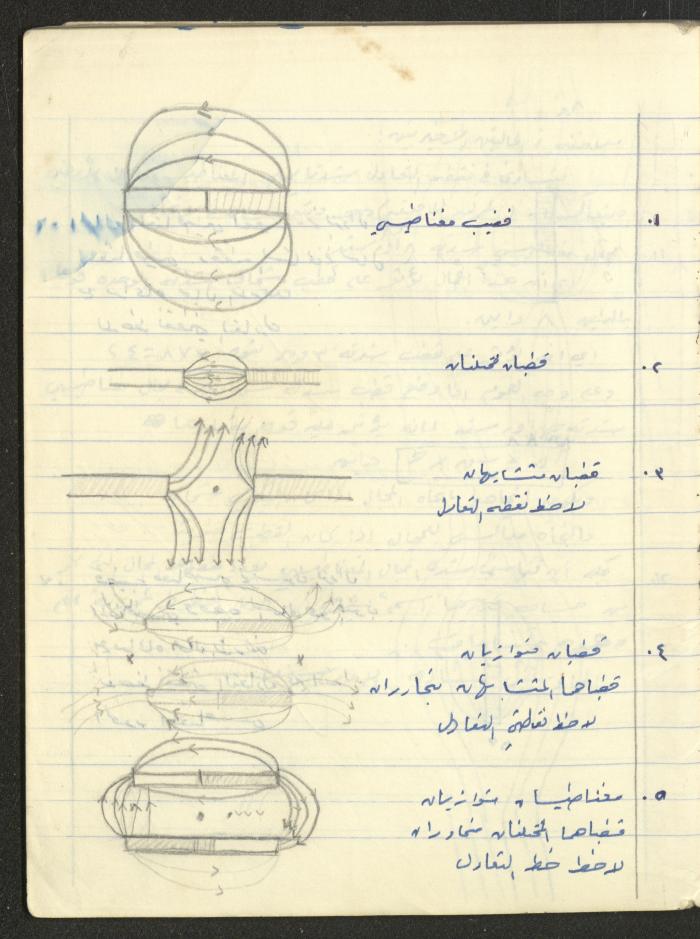 ١. قضيب مغناطيسي
٢. قطبان مختلفان
٣. قطبان متشابهان
لاحظ نقطة التعادل
٤. قضبان متوازيان
قطباهما المتشابهان متجاوران
لاحظ نقطتي التعادل
٥. مغناطيسان متوازيان
قطباهما المختلفان متجاوران
لاحظ خط التعادل